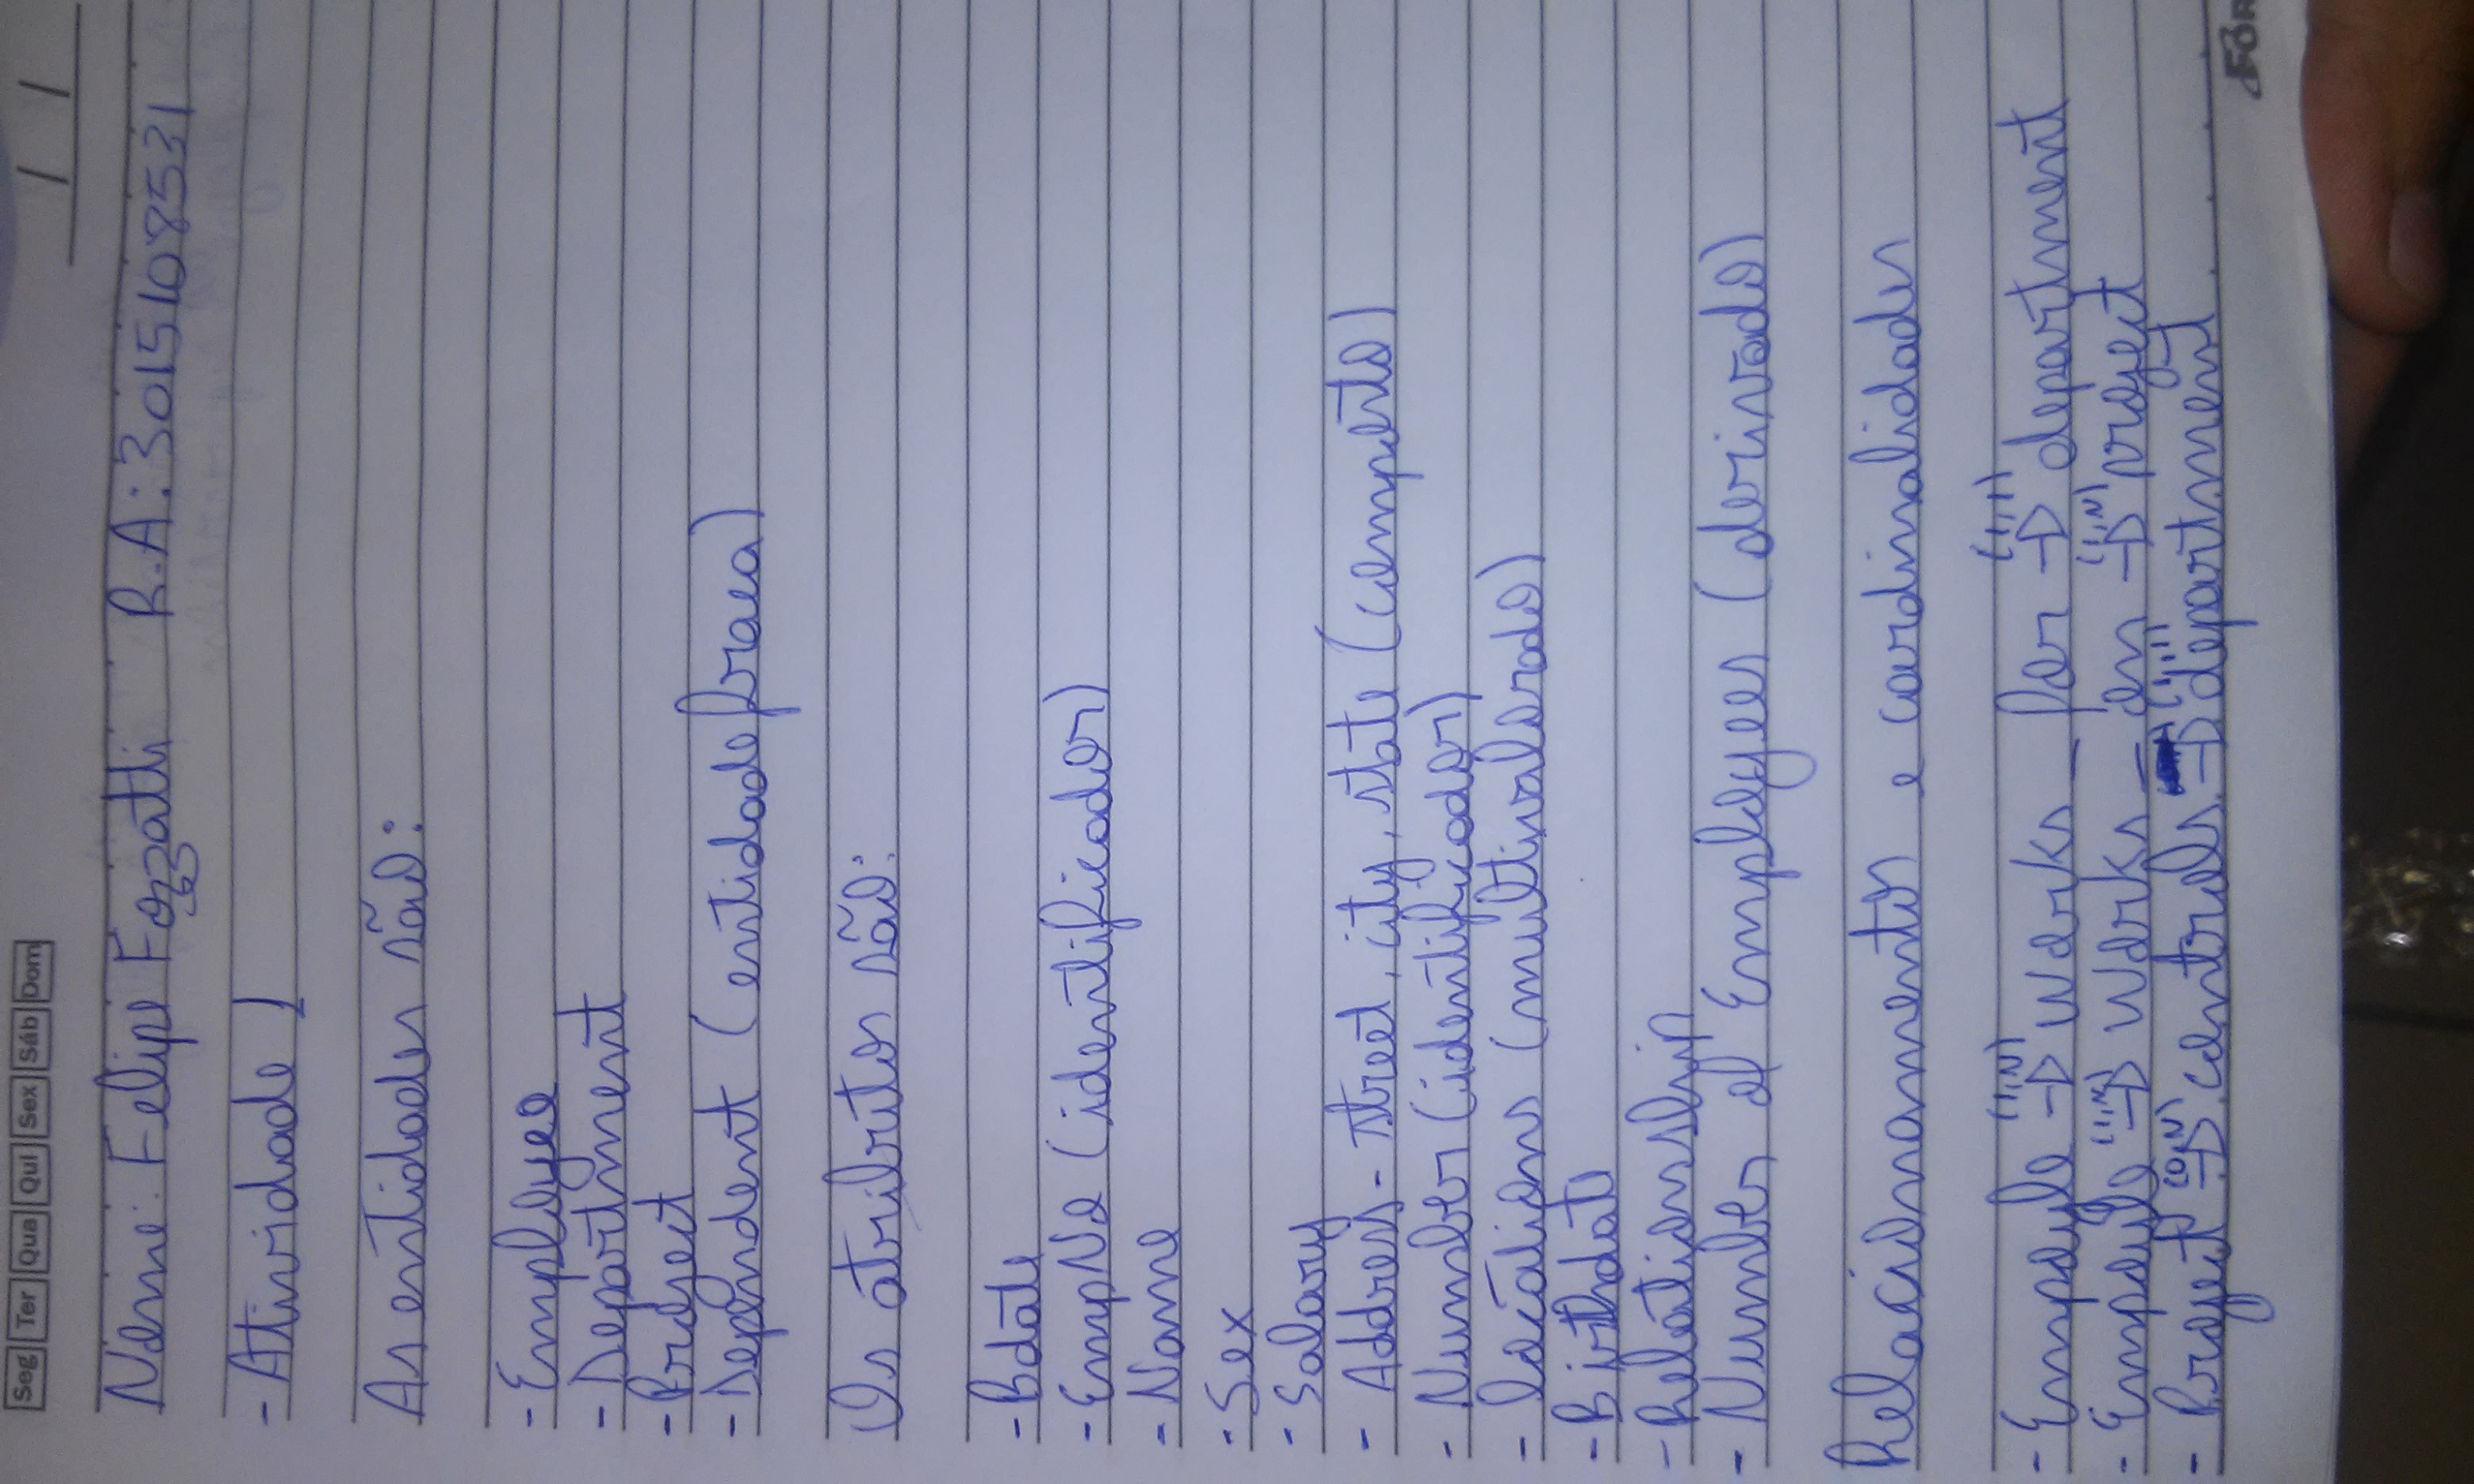 Seg Ter Qua Qui Sex Sáb Dom
/ /
Nome: Felipe Fozzatti R.A: 3015108531
- Atividade 1
As entidades são:
- Employee
- Department
- Project
- Dependent (entidade fraca)
Os atributos são:
- Bdate
- EmpNo (identificador)
- Name
- Sex
- Salary
- Address - street, city, state (composto)
- Number (identificador)
- locations (multivalorado)
- Birthdate
- Relationship
- Number of Employees (derivado)
Relacionamentos e cardinalidades
- Empoyle (1,N) → Works_for (1,1) → department
- Empoyle (1,N) → Works_on (1,N) → project
- Project (0,N) → controls (1,1) → department